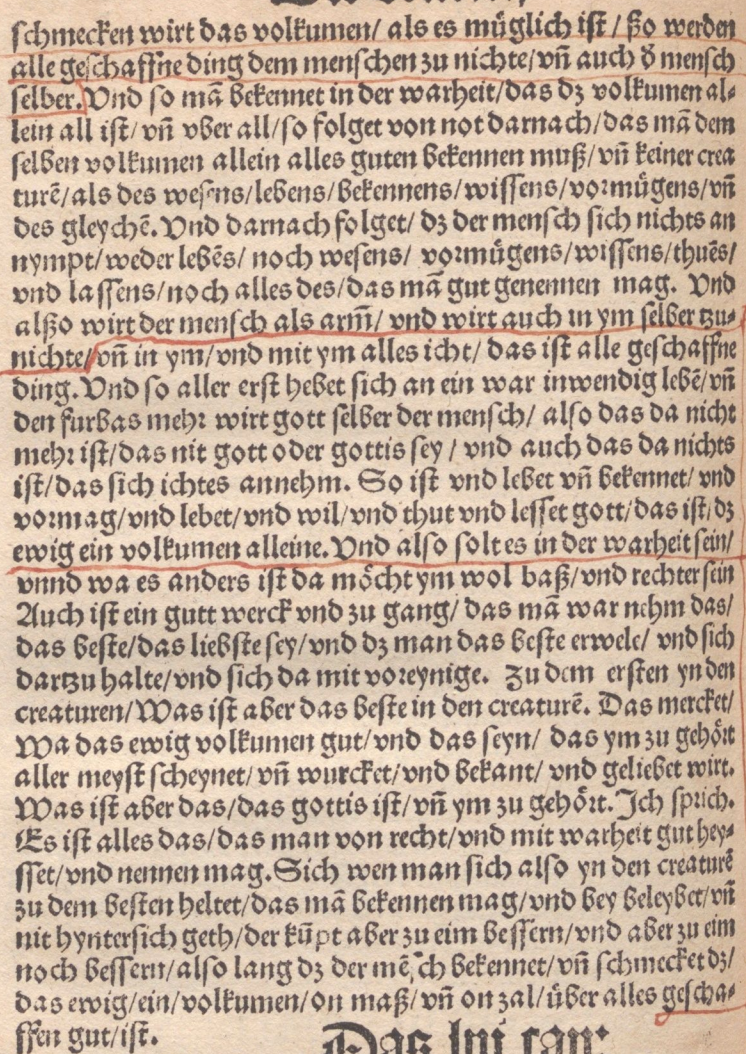 schmecken wirt das volkumen/ als es müglich ist/ ßo werden
alle geschaffne ding dem menschen zu nichte/ vñ auch d̕ mensch
selber. Vnd so mã bekennet in der warheit/ das dz volkumen al⸗
lein all ist/ vñ vber all/ so folget von not darnach/ das mã dem
selben volkumen allein alles guten bekennen muß/ vñ keiner crea
turẽ/ als des wesens/ lebens/ bekennens/ wissens/ vormügens/ vñ
des gleychẽ. Vnd darnach folget/ dz der mensch sich nichts an
nympt/ weder lebẽs/ noch wesens/ vormügens/ wissens/ thuẽs/
vnd lassens/ noch alles des/ das mã gut genennen mag. Vnd
alßo wirt der mensch als arm̃/ vnd wirt auch in ym selber tzu⸗
nichte/ vñ in ym/ vnd mit ym alles icht/ das ist alle geschaffne
ding. Vnd so aller erst hebet sich an ein war inwendig lebẽ/ vñ
den furbas mehr wirt gott selber der mensch/ also das da nicht
mehr ist/ das nit gott oder gottis sey/ vnd auch das da nichts
ist/ das sich ichtes annehm. So ist vnd lebet vñ bekennet/ vnd
vormag/ vnd lebet/ vnd wil/ vnd thut vnd lesset gott/ das ist/ dz
ewig ein volkumen alleine. Vnd also solt es in der warheit sein/
vnnd wa es anders ist da möcht ym wol baß/ vnd rechter sein
Auch ist ein gutt werck vnd zu gang/ das mã war nehm das/
das beste/ das liebste sey/ vnd dz man das beste erwele/ vnd sich
dartzu halte/ vnd sich da mit voreynige. Zu dem ersten yn den
creaturen/ Was ist aber das beste in den creaturẽ. Das mercket/
Wa das ewig volkumen gut/ vnd das seyn/ das ym zu gehört
aller meyst scheynet/ vñ wurcket/ vnd bekant/ vnd geliebet wirt.
Was ist aber das/ das gottis ist/ vñ ym zu gehört. Ich sprich.
Es ist alles das/ das man von recht/ vnd mit warheit gut hey⸗
sset/ vnd nennen mag. Sich wen man sich also yn den creaturẽ
zu dem besten heltet/ das mã bekennen mag/ vnd bey beleybet/ vñ
nit hyntersich geth/ der kũpt aber zu eim bessern/ vnd aber zu eim
noch bessern/ also lang dz der mẽsch bekennet/ vñ schmecket dz/
das ewig/ ein/ volkumen/ on maß/ vñ on zal/ über alles gescha⸗
ffen gut/ ist.
Das lvi cap: